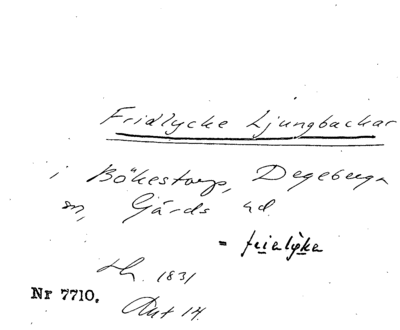 Fridlycke Ljungbackar
i Bökestorp, Degeberga
sn, Gärds hd.
= frialyka
Lh. 1831
Akt 14.
Nr 7710.